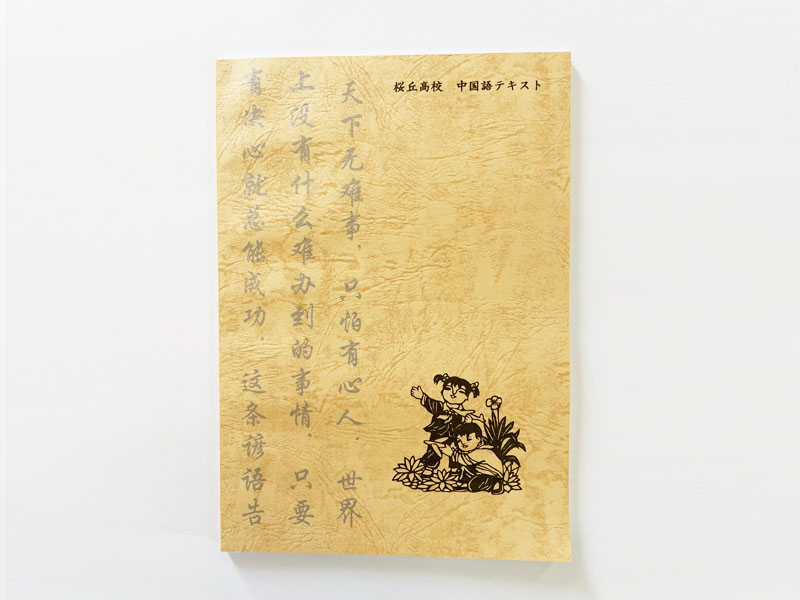 桜丘高校　中国語テキスト
天下无难事，只怕有心人．世界
上没有什么难办到的事情，只要
有决心就总能成功．这条谚语告